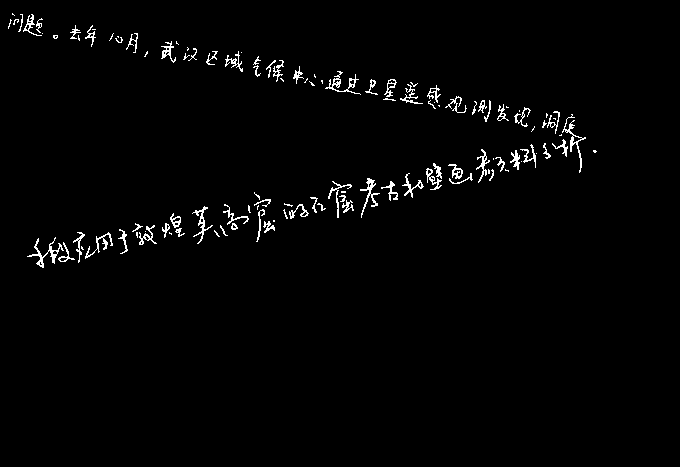 问题。去年10月，武汉区域气候中心通过卫星遥感观测发现，洞庭
手段应用于敦煌莫高窟的石窟考古和壁画颜料分析.